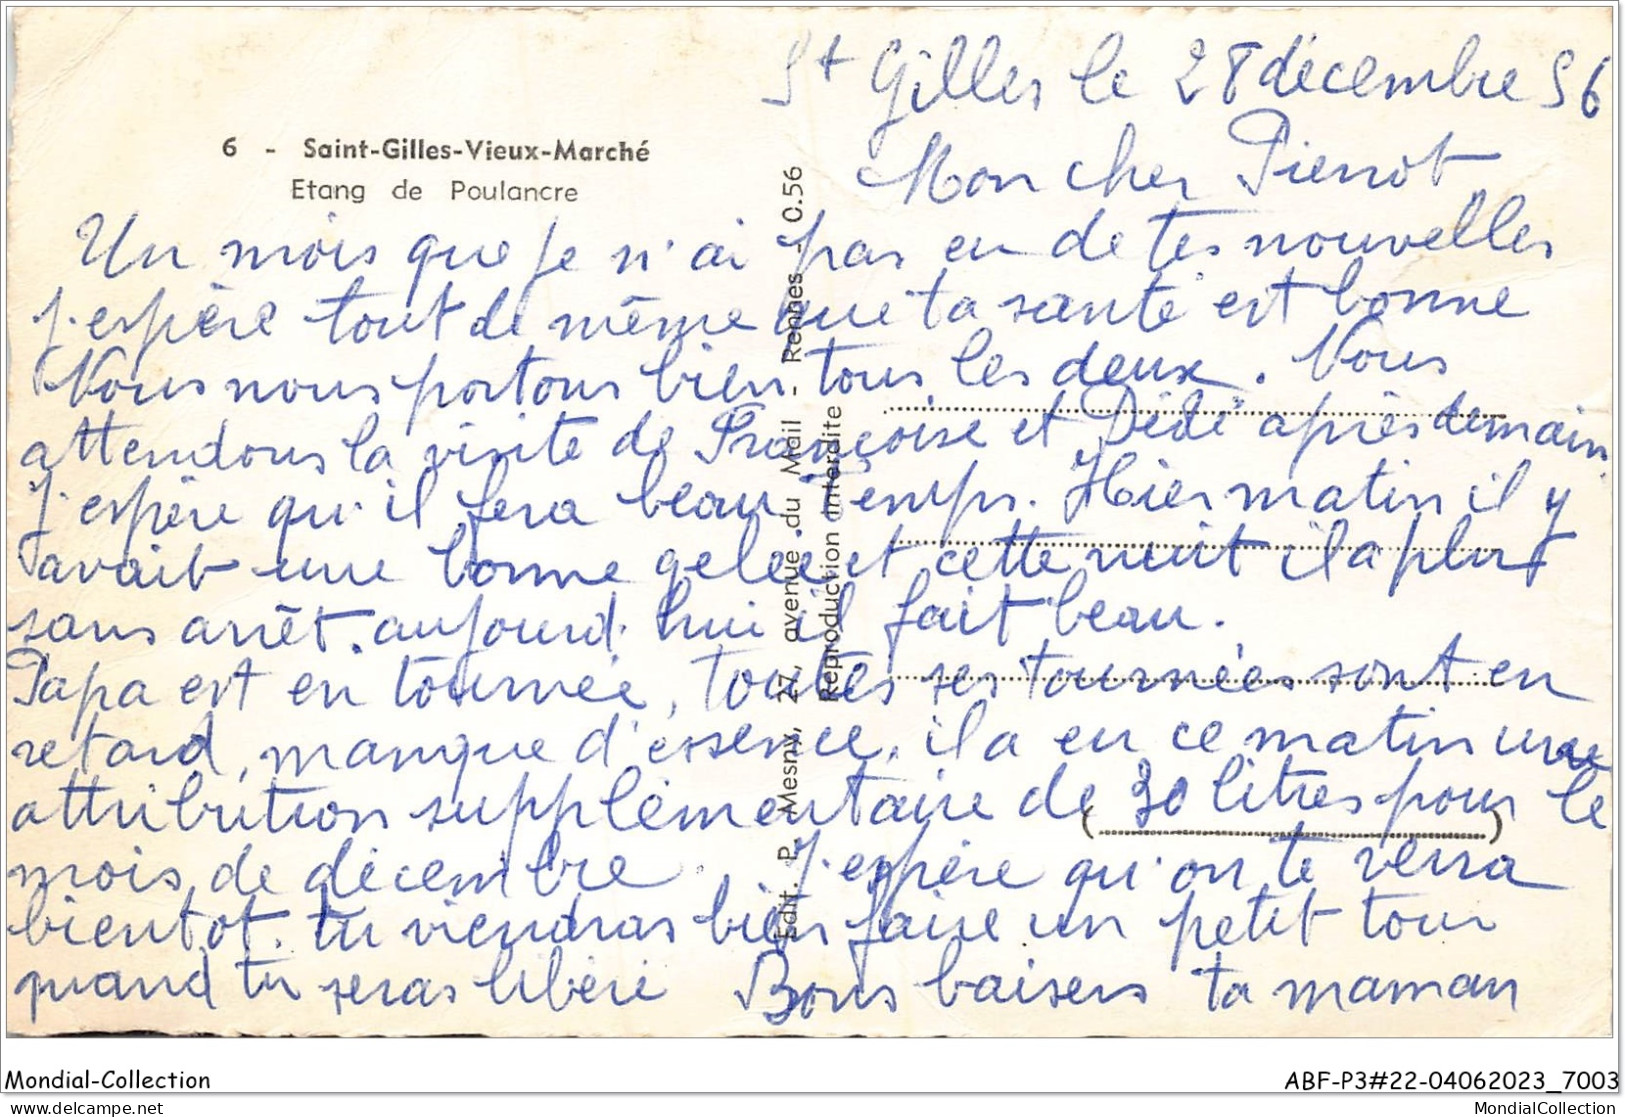 St Gilles le 28 décembre 56
6 - Saint-Gilles-Vieux-Marché
Etang de Poulancre
Mon cher Pierrot
Un mois que je n'ai pas eu de tes nouvelles
j'espère tout de même que ta santé est bonne
Nous nous portons bien tous les deux. Nous
attendons la visite de Françoise et Dédé après demain.
J'espère qu'il fera beau temps. Hier matin il y
avait une bonne gelée et cette nuit il a plut
sans arrêt. aujourd'hui il fait beau.
Papa est en tournée, toutes ses tournées sont en
retard, manque d'essence, il a eu ce matin une
attribution supplémentaire de 30 litres pour le
mois de décembre. J'espère qu'on te verra
bientot. tu viendras bien faire un petit tour
quand tu seras libéré Bons baisers ta maman
Edit. P. Mesny, 27, avenue du Mail - Rennes - 0.56
Reproduction interdite
Mondial-Collection
ABF-P3#22-04062023_7003
delcampe.net
MondialCollection